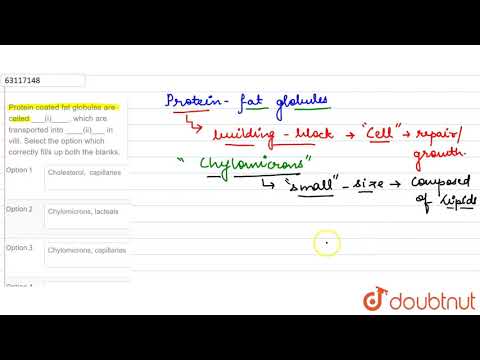 63117148
Protein coated fat globules are
called ___(i)____, which are
transported into ____(ii)___ in
villi. Select the option which
correctly fills up both the blanks.
Option 1
Cholesterol, capillaries
Option 2
Chylomicrons, lacteals
Option 3
Chylomicrons, capillaries
Protein - fat globules
building - block → "Cell" → repair/
growth.
"Chylomicrons"
"small" - size → composed
of lipids
doubtnut